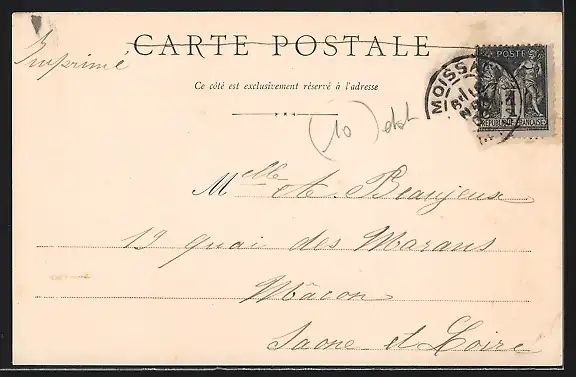 Imprimé
CARTE POSTALE
Ce côté est exclusivement réservé à l'adresse
POSTE
1
RÉPUBLIQUE FRANÇAISE
MOISSAC
(10)
Melle A. Beaujeux
19 quai des Marans
Mâcon
Saone et Loire